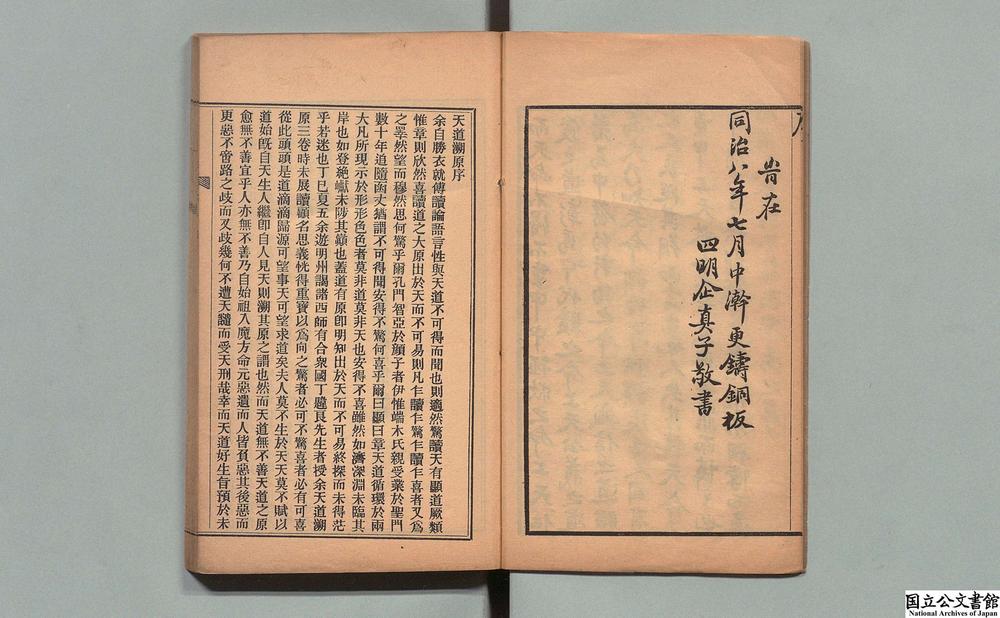 旹在
同治八年七月中澣更鑄銅板
四明企真子敬書
天道溯原序
余自勝衣就傅讀論語言性與天道不可得而聞也則適然驚讀天有顯道厥類
惟章則欣然喜讀道之大原出於天而不可易則凡乍讀乍驚乍讀乍喜者又爲
之睪然望而穆然思何驚乎爾孔門智亞於顔子者伊惟端木氏親受業於聖門
數十年追隨函丈猶謂不可得聞安得不驚何喜乎爾曰顯曰章天道循環於兩
大凡所現示於形形色色者莫非道莫非天也安得不喜雖然如濟深淵未臨其
岸也如登絶巘未陟其巔也蓋道有原卽明知出於天而不可易終探而未得茫
乎若迷也丁巳夏五余遊明州謁諸西師有合衆國丁韙良先生者授余天道溯
原三卷時未展讀顧名思義恍得重寶以爲向之驚者必可不驚喜者必有可喜
從此頭頭是道滴滴歸源可望事天可望求道矣夫人莫不生於天天莫不賦以
道始旣自天生人繼卽自人見天則溯其原之謂也然而天道無不善天道之原
愈無不善宜乎人亦無不善乃自始祖入魔方命元惡遺而人皆貧惡其後惡而
更惡不啻路之歧而又歧幾何不遭天譴而受天刑哉幸而天道好生旨預於未
国立公文書館
National Archives of Japan